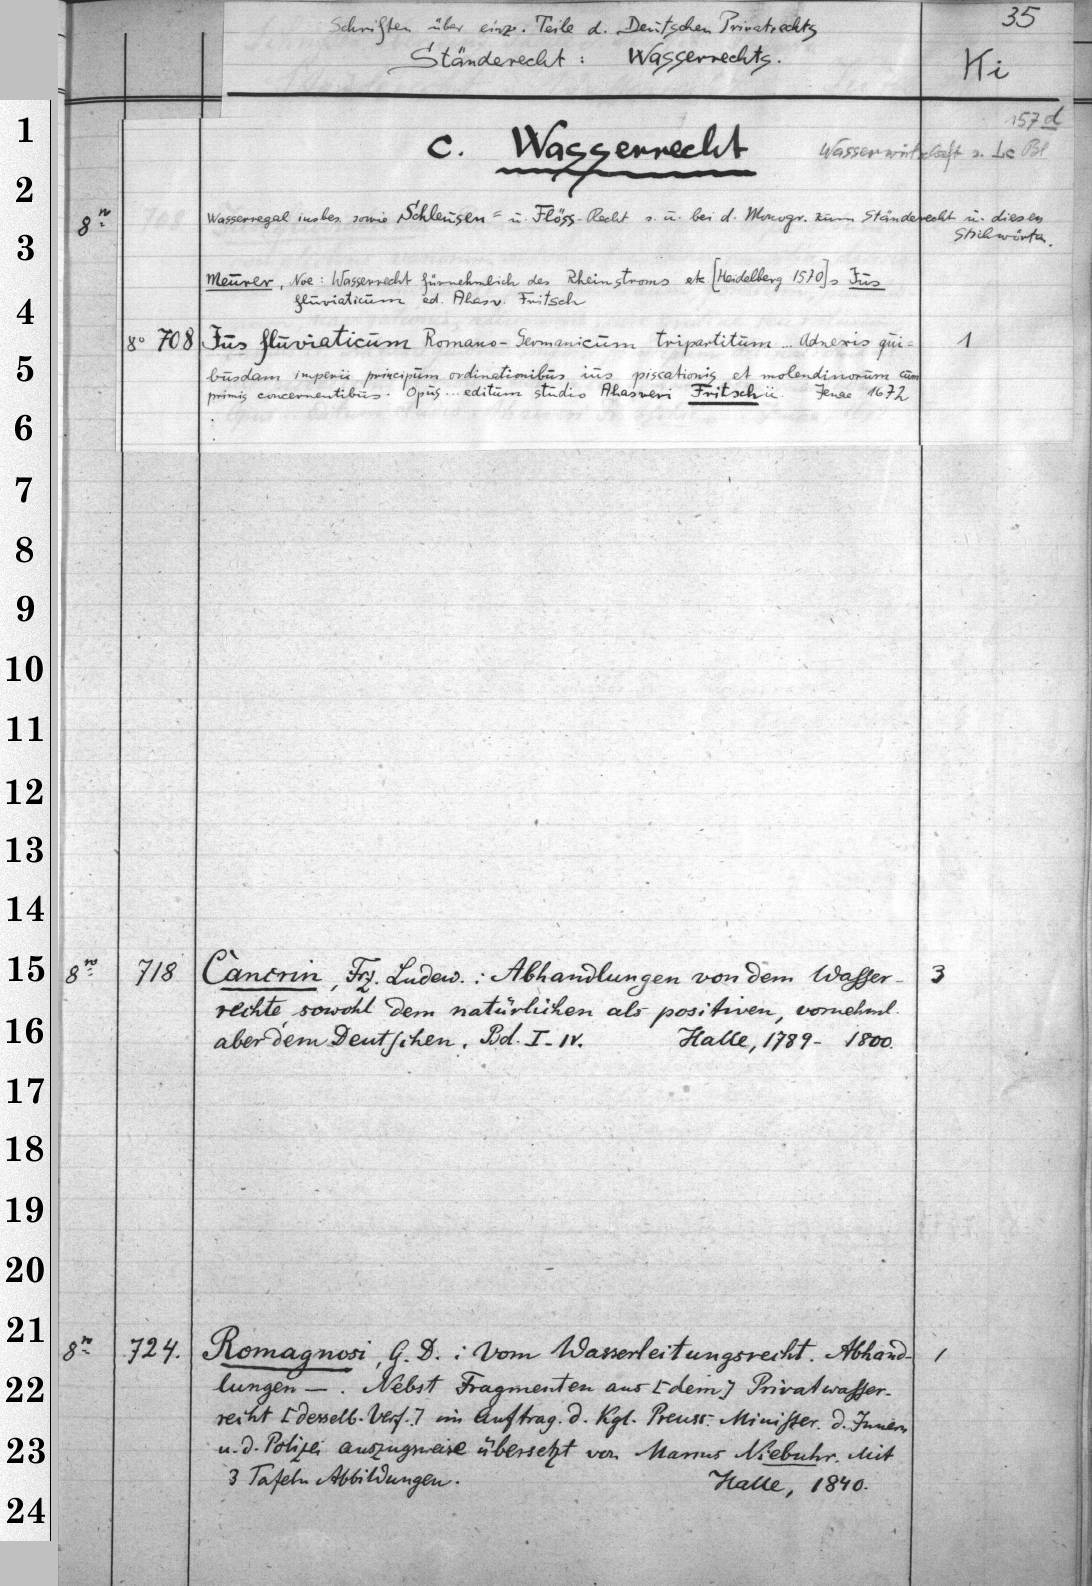 35
Schriften über einz. Teile d. Deutschen Privatrechts
Ständerecht : Wasserrechts.
Ki
157 d
c. Wasserrecht
Wasserwirtschaft s. Lc Bl
8n
Wasserregal insbes. sowie Schleusen= u. Flöss-Recht s. u. bei d. Monogr. zum Ständerecht u. diesen
Stichwörtern.
Meurer, Noe: Wasserrecht fürnehmlich des Rheinstroms etc [Heidelberg 1570] s Jus
fluviaticum ed. Ahasv. Fritsch
8° 708 Jus fluviaticum Romano-Germanicum tripartitum ... Adnexis qui= 1
busdam imperii principum ordinationibus ius piscationis et molendinorum cum
primis concernentibus. Opus ... editum studio Ahasveri Fritschii. Jenae 1672
8n 718 Cancrin, Frz. Ludew. : Abhandlungen von dem Wasser- 3
rechte sowohl dem natürlichen als positiven, vornehml.
aber dem Deutschen. Bd. I-IV. Halle, 1789- 1800.
8n 724. Romagnosi, G. D. : Vom Wasserleitungsrecht. Abhand- 1
lungen —. Nebst Fragmenten aus [dem] Privatwasser-
recht [desselb. Verf.] im Auftrag. d. Kgl. Preuss. Minister. d. Innern
u. d. Polizei auszugsweise übersetzt von Marcus Niebuhr. Mit
3 Tafeln Abbildungen. Halle, 1840.
1
2
3
4
5
6
7
8
9
10
11
12
13
14
15
16
17
18
19
20
21
22
23
24